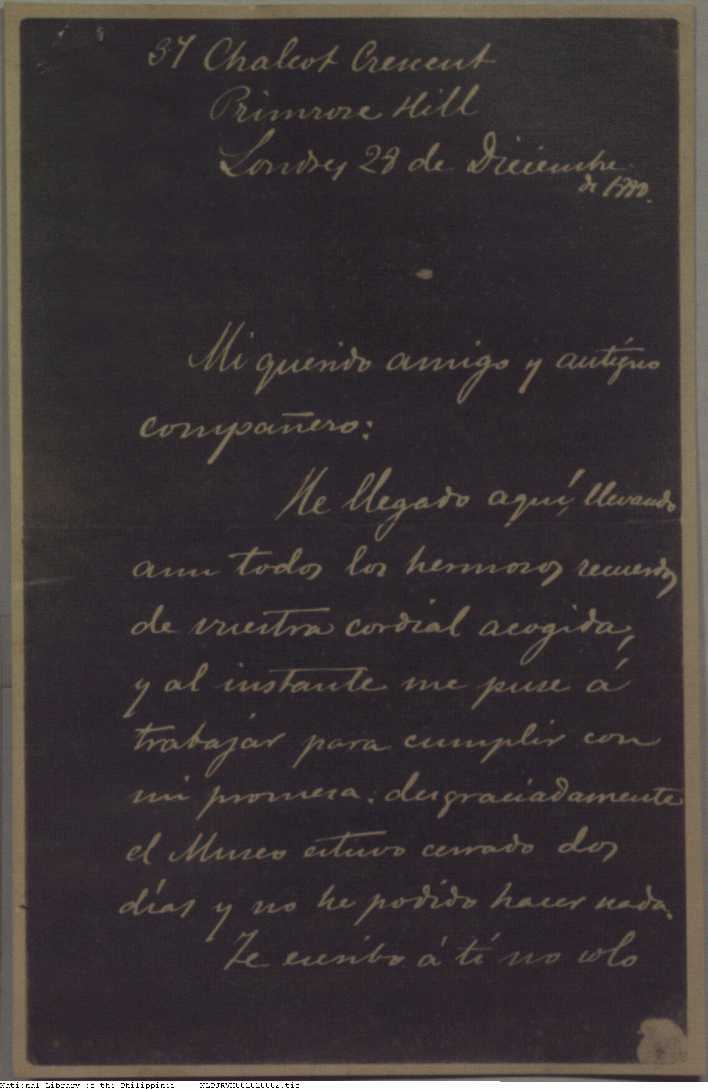 37 Chalcot Crescent
Primrose Hill
Londres 28 de Diciembre
de 1888.
Mi querido amigo y antíguo
compañero:
He llegado aquí, llevando
aun todos los hermosos recuerdos
de vuestra cordial acogida,
y al instante me puse á
trabajar para cumplir con
mi promesa: desgraciadamente
el Museo estuvo cerrado dos
días y no he podido hacer nada.
Te escribo á tí no solo
National Library of the Philippines